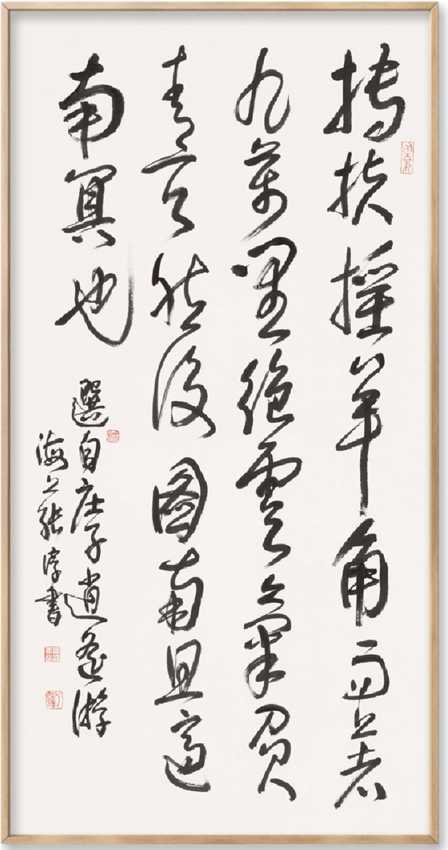 摶扶摇羊角而上者
九萬里絕雲氣負
青天然後圖南且適
南冥也
選自庄子逍遙游
海上張淳書